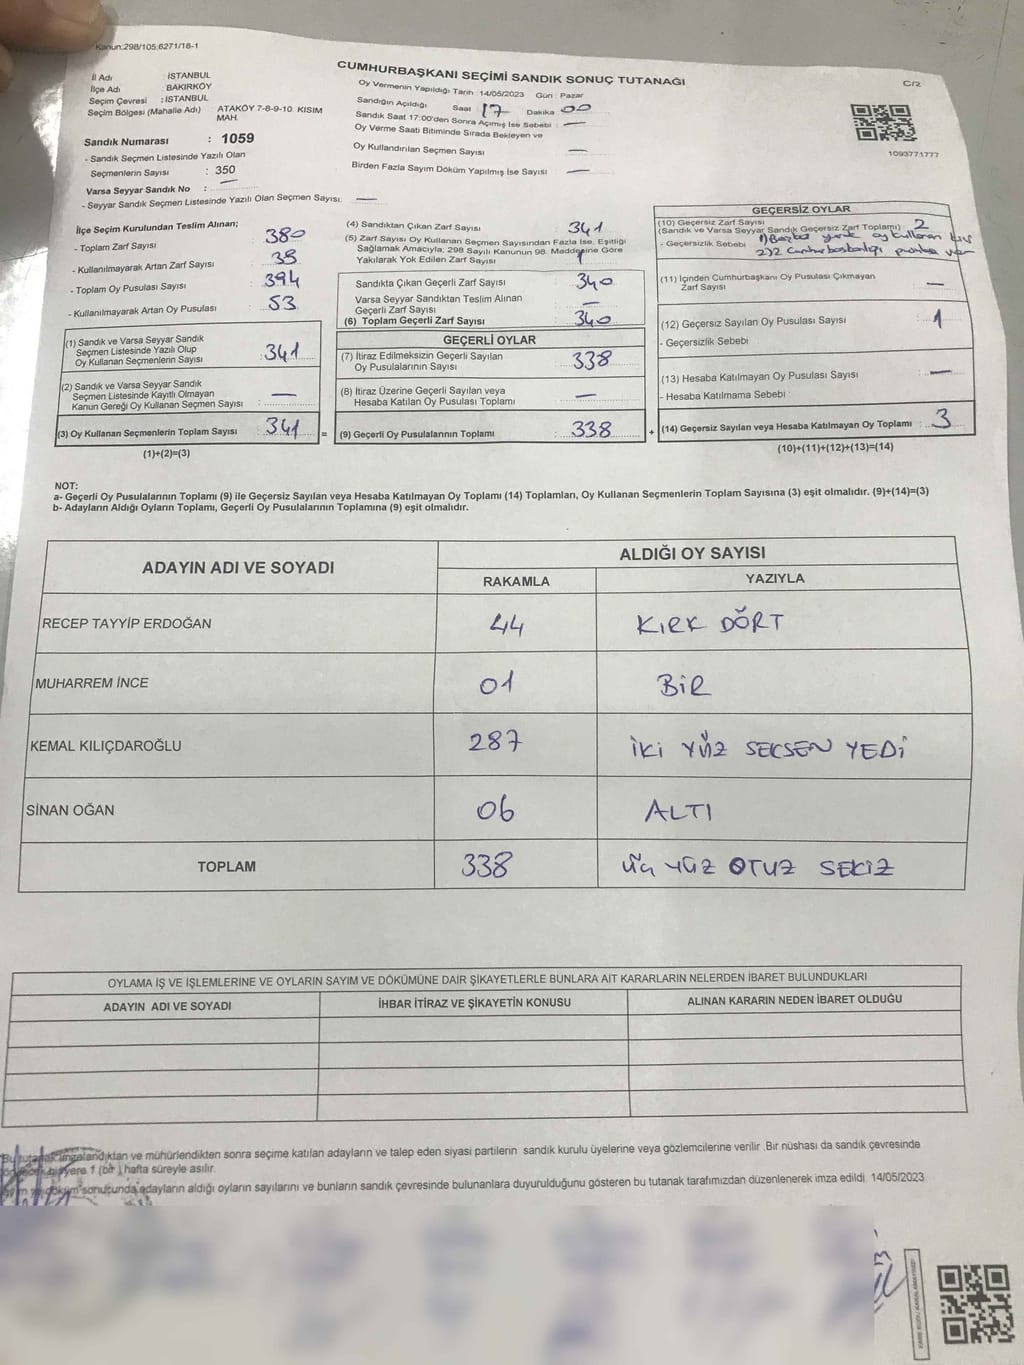 Kanun:298/105,6271/18-1
CUMHURBAŞKANI SEÇİMİ SANDIK SONUÇ TUTANAĞI
C/2
İl Adı : İSTANBUL
İlçe Adı : BAKIRKÖY
Seçim Çevresi : İSTANBUL
Seçim Bölgesi (Mahalle Adı) ATAKÖY 7-8-9-10. KISIM MAH.
Sandık Numarası : 1059
- Sandık Seçmen Listesinde Yazılı Olan
Seçmenlerin Sayısı : 350
Varsa Seyyar Sandık No : —
- Seyyar Sandık Seçmen Listesinde Yazılı Olan Seçmen Sayısı: —
Oy Vermenin Yapıldığı Tarih : 14/05/2023 Gün : Pazar
Sandığın Açıldığı Saat 17 Dakika 00
Sandık Saat 17:00'den Sonra Açımış İse Sebebi : —
Oy Verme Saati Bitiminde Sırada Bekleyen ve
Oy Kullandırılan Seçmen Sayısı —
Birden Fazla Sayım Döküm Yapılmış İse Sayısı —
1093771777
İlçe Seçim Kurulundan Teslim Alınan;
- Toplam Zarf Sayısı 380
- Kullanılmayarak Artan Zarf Sayısı 38
- Toplam Oy Pusulası Sayısı : 394
- Kullanılmayarak Artan Oy Pusulası : 53
(1) Sandık ve Varsa Seyyar Sandık
Seçmen Listesinde Yazılı Olup
Oy Kullanan Seçmenlerin Sayısı : 341
(2) Sandık ve Varsa Seyyar Sandık
Seçmen Listesinde Kayıtlı Olmayan
Kanun Gereği Oy Kullanan Seçmen Sayısı : —
(3) Oy Kullanan Seçmenlerin Toplam Sayısı : 341 =
(1)+(2)=(3)
(4) Sandıktan Çıkan Zarf Sayısı : 341
(5) Zarf Sayısı Oy Kullanan Seçmen Sayısından Fazla İse, Eşitliği
Sağlamak Amacıyla; 298 Sayılı Kanunun 98. Maddesine Göre
Yakılarak Yok Edilen Zarf Sayısı 1
Sandıkta Çıkan Geçerli Zarf Sayısı : 340
Varsa Seyyar Sandıktan Teslim Alınan
Geçerli Zarf Sayısı : —
(6) Toplam Geçerli Zarf Sayısı : 340
GEÇERLİ OYLAR
(7) İtiraz Edilmeksizin Geçerli Sayılan
Oy Pusulalarının Sayısı : 338
(8) İtiraz Üzerine Geçerli Sayılan veya
Hesaba Katılan Oy Pusulası Toplamı : —
(9) Geçerli Oy Pusulalarının Toplamı : 338 +
GEÇERSİZ OYLAR
(10) Geçersiz Zarf Sayısı
(Sandık ve Varsa Seyyar Sandık Geçersiz Zarf Toplamı) : 2
- Geçersizlik Sebebi
(11) İçinden Cumhurbaşkanı Oy Pusulası Çıkmayan
Zarf Sayısı : —
(12) Geçersiz Sayılan Oy Pusulası Sayısı : 1
- Geçersizlik Sebebi
(13) Hesaba Katılmayan Oy Pusulası Sayısı : —
- Hesaba Katılmama Sebebi :
(14) Geçersiz Sayılan veya Hesaba Katılmayan Oy Toplamı : 3
(10)+(11)+(12)+(13)=(14)
NOT:
a- Geçerli Oy Pusulalarının Toplamı (9) ile Geçersiz Sayılan veya Hesaba Katılmayan Oy Toplamı (14) Toplamları, Oy Kullanan Seçmenlerin Toplam Sayısına (3) eşit olmalıdır. (9)+(14)=(3)
b- Adayların Aldığı Oyların Toplamı, Geçerli Oy Pusulalarının Toplamına (9) eşit olmalıdır.
ADAYIN ADI VE SOYADI
ALDIĞI OY SAYISI
RAKAMLA YAZIYLA
RECEP TAYYİP ERDOĞAN 44 KIRK DÖRT
MUHARREM İNCE 01 BİR
KEMAL KILIÇDAROĞLU 287 İKİ YÜZ SEKSEN YEDİ
SİNAN OĞAN 06 ALTI
TOPLAM 338 ÜÇ YÜZ OTUZ SEKİZ
OYLAMA İŞ VE İŞLEMLERİNE VE OYLARIN SAYIM VE DÖKÜMÜNE DAİR ŞİKAYETLERLE BUNLARA AİT KARARLARIN NELERDEN İBARET BULUNDUKLARI
ADAYIN ADI VE SOYADI İHBAR İTİRAZ VE ŞİKAYETİN KONUSU ALINAN KARARIN NEDEN İBARET OLDUĞU
Bu tutanak imzalandıktan ve mühürlendikten sonra seçime katılan adayların ve talep eden siyasi partilerin sandık kurulu üyelerine veya gözlemcilerine verilir. Bir nüshası da sandık çevresinde
bir yere 1 (bir) hafta süreyle asılır.
sonucunda adayların aldığı oyların sayılarını ve bunların sandık çevresinde bulunanlara duyurulduğunu gösteren bu tutanak tarafımızdan düzenlenerek imza edildi. 14/05/2023